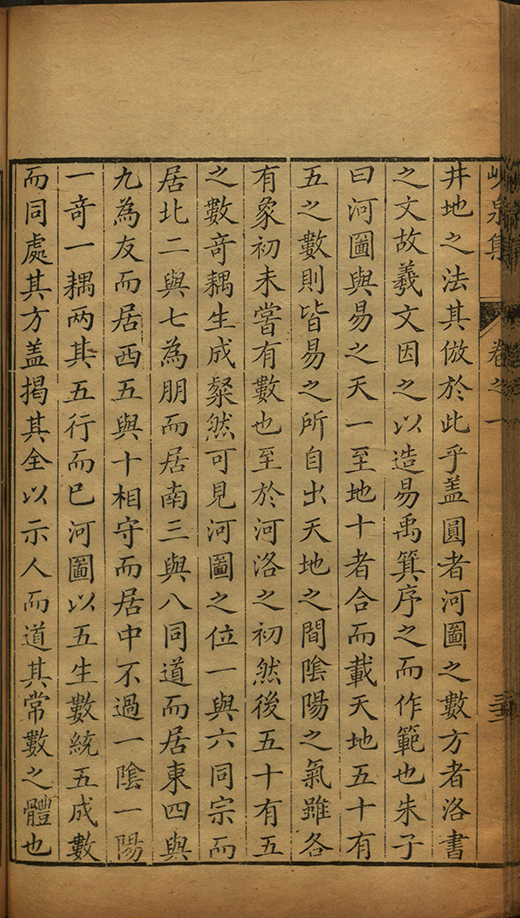 峴泉集
卷之一
井地之法其倣於此乎盖圓者河圖之數方者洛書
之文故羲文因之以造易禹箕序之而作範也朱子
曰河圖與易之天一至地十者合而載天地五十有
五之數則皆易之所自出天地之間隂陽之氣雖各
有象初未嘗有數也至於河洛之初然後五十有五
之數竒耦生成粲然可見河圖之位一與六同宗而
居北二與七為朋而居南三與八同道而居東四與
九為友而居西五與十相守而居中不過一隂一陽
一竒一耦两其五行而已河圖以五生數統五成數
而同處其方盖揭其全以示人而道其常數之體也